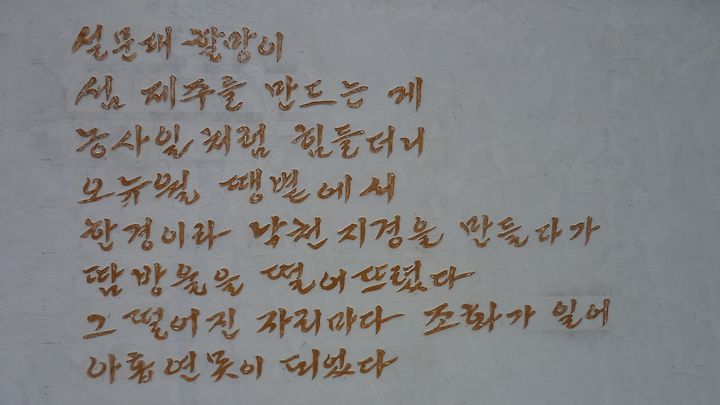 설문대 할망이
섬 제주를 만드는 게
농사일처럼 힘들더니
오뉴월 땡볕에서
한경이라 낙천 지경을 만들다가
땀방울을 떨어뜨렸다
그 떨어진 자리마다 조화가 일어
아홉연못이 되었다